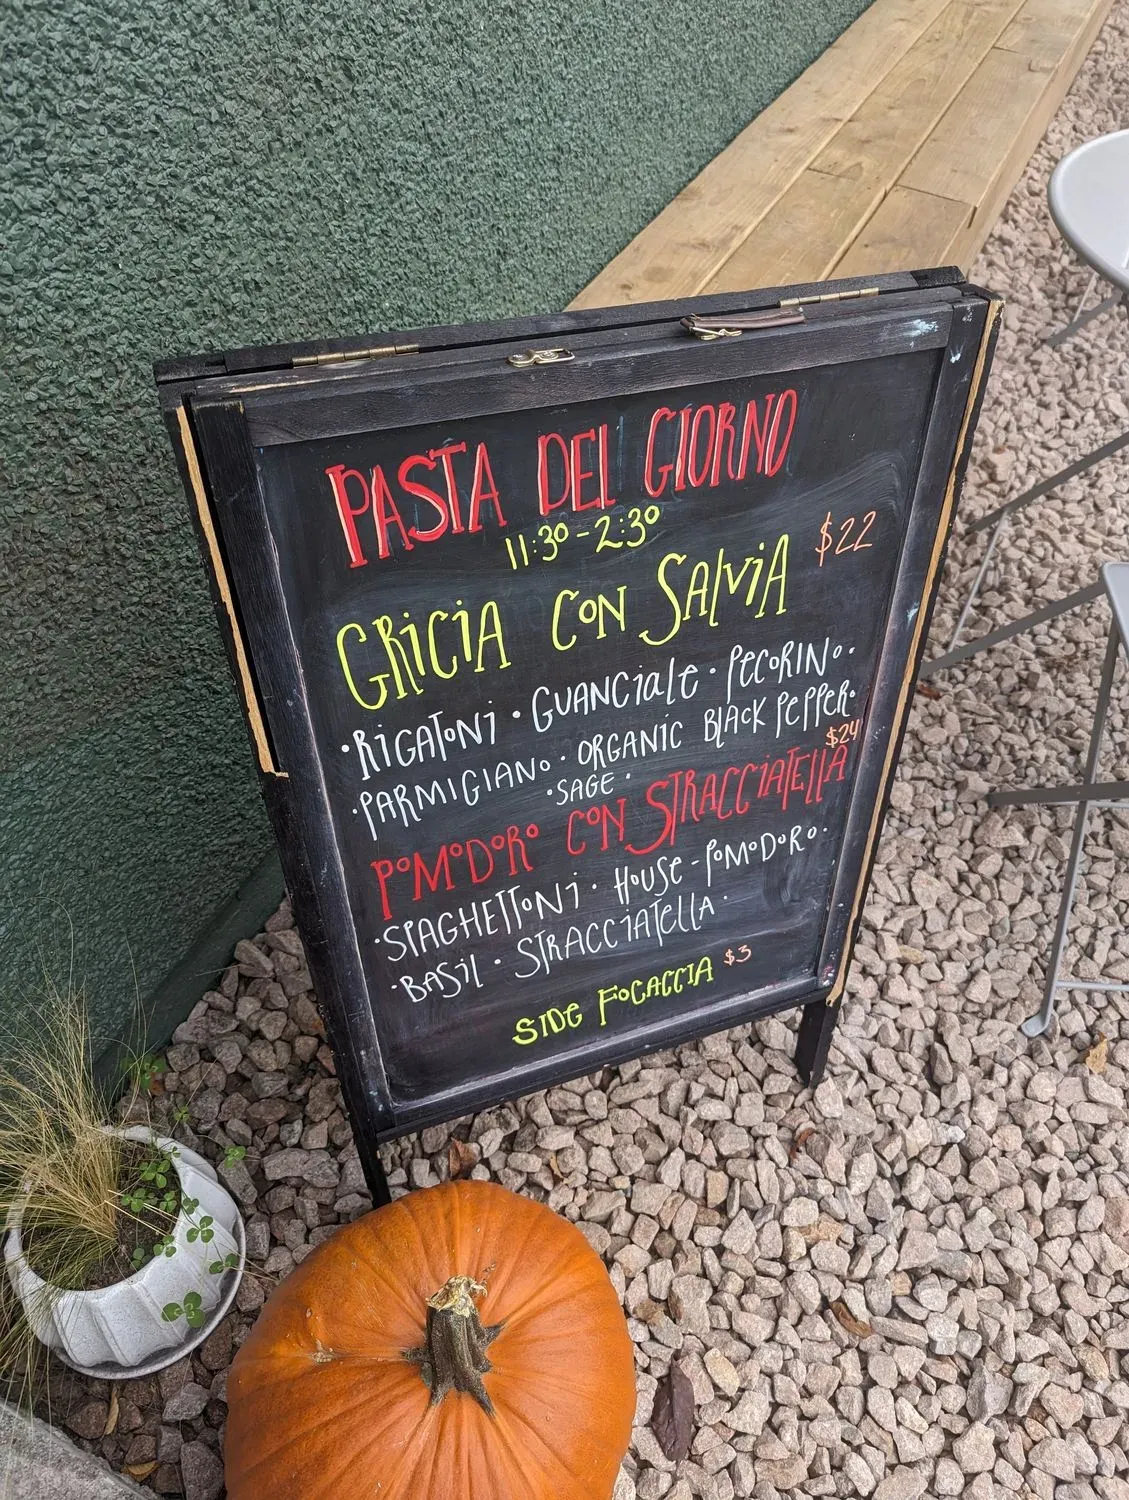 PASTA DEL GIORNO
11:30-2:30
GRICIA CON SALVIA $22
·RIGATONI · GUANCIALE · PECORINO·
·PARMIGIANO · ORGANIC BLACK PEPPER·
·SAGE·
$24
POMODORO CON STRACCIATELLA
·SPAGHETTONI · HOUSE-POMODORO·
·BASIL · STRACCIATELLA·
SIDE FOCACCIA $3